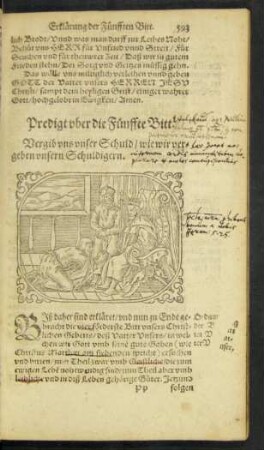 Erklärung der Fünfften Bitt. 593
lich Brodt/ Vnnd was man darff zur Leibes Noht/
Behüt vns HERR für Vnfried vnnd Streit/ Für
Seuchen vnd für thewrer Zeit/ Daß wir in gutem
Frieden stehn/ Der Sorg vnd Geitzes müssig gehn.
Das wölle vns miltiglich verleihen vnnd geben
GOTT der Vatter vnsers HERREN JESV
Christi/ sampt dem heyligen Geist/ einiger wahrer
Gott/ hochgelobt in Ewigkeit/ Amen.
Predigt vber die Fünffte Bitt.
Vergib vns vnser Schuld/ wie wir ver-
geben vnsern Schuldigern.
Biß daher sind erkläret/ vnd nun zu Ende ge-
bracht die vier förderste Bitt vnsers Christ-
lichen Gebets/ deß Vatter Vnsers/ in wel-
chen wir Gott vmb seine gute Gaben (wie
Christus Matthæi am siebenden spricht) ersuchen
vnd bitten/ zum Theil zwar vmb Geistliche die zum
ewigen Lebē nohtwendig sind/ zum Theil aber vmb
Leibliche/ vnd in diß Leben gehörige Güter. Jetzund
Pp folgen